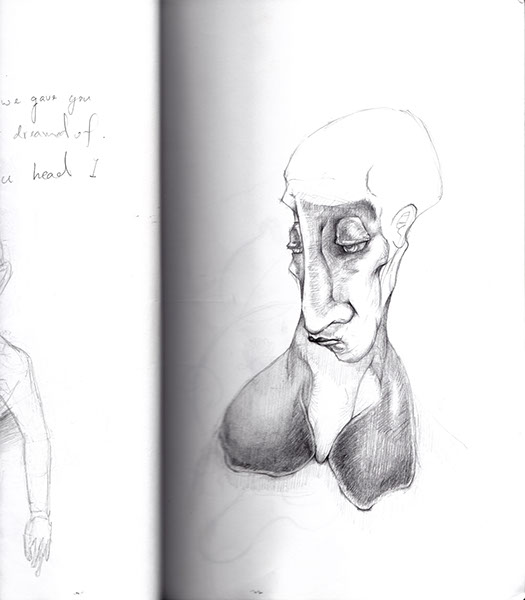 we gave you
dreamed of.
head I